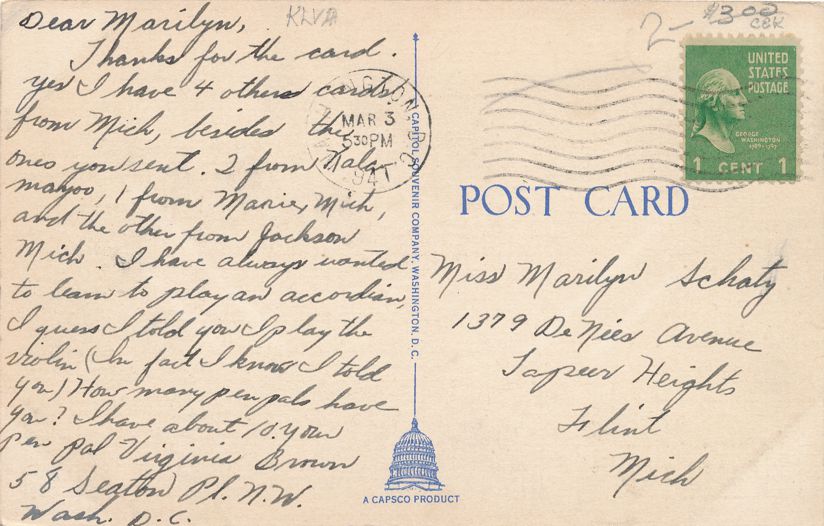 Dear Marilyn,
Thanks for the card.
yes I have 4 others cards
from Mich, besides the
ones you sent. 2 from Kala-
mazoo, 1 from Marier, Mich,
and the other from Jackson
Mich. I have always wanted
to learn to play an accordian,
I guess I told you I play the
violin (In fact I know I told
you) How many pen pals have
you? I have about 10. your
Pen Pal Virginia Brown
58 Seaton Pl. N.W.
Wash. D.C.
KLVA
2- $3.00
CBK
WASHINGTON, D.C.
MAR 3
530PM
1941
UNITED
STATES
POSTAGE
GEORGE
WASHINGTON
1789-1797
1 CENT 1
CAPITOL SOUVENIR COMPANY, WASHINGTON, D.C.
POST CARD
Miss Marilyn Schaty
1379 DeNies Avenue
Lapeer Heights
Flint
Mich
A CAPSCO PRODUCT